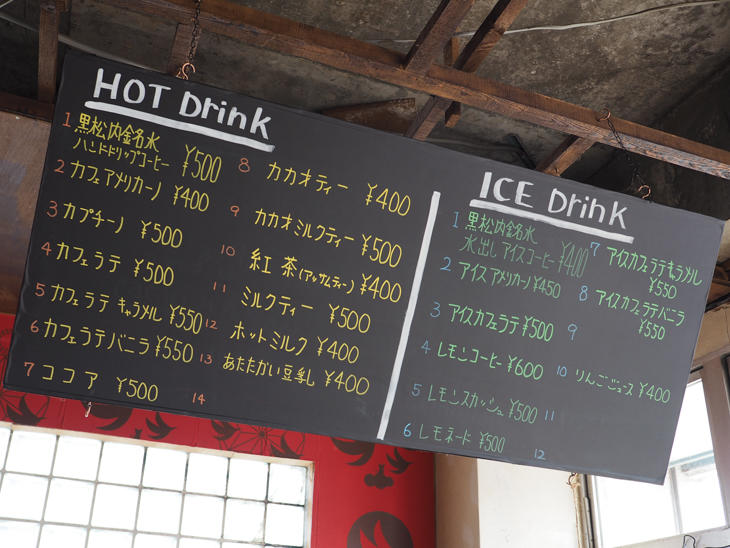 HOT Drink
1 黒松内銘水
ハンドドリップコーヒー ¥500
2 カフェアメリカーノ ¥400
3 カプチーノ ¥500
4 カフェラテ ¥500
5 カフェラテ キャラメル ¥550
6 カフェラテバニラ ¥550
7 ココア ¥500
8 カカオティー ¥400
9 カカオミルクティー ¥500
10 紅茶(アッサムティー) ¥400
11 ミルクティー ¥500
12 ホットミルク ¥400
13 あたたかい豆乳 ¥400
14
ICE Drink
1 黒松内銘水
水出しアイスコーヒー ¥400
2 アイスアメリカーノ ¥450
3 アイスカフェラテ ¥500
4 レモンコーヒー ¥600
5 レモンスカッシュ ¥500
6 レモネード ¥500
7 アイスカフェラテキャラメル
¥550
8 アイスカフェラテバニラ
¥550
9
10 りんごジュース ¥400
11
12